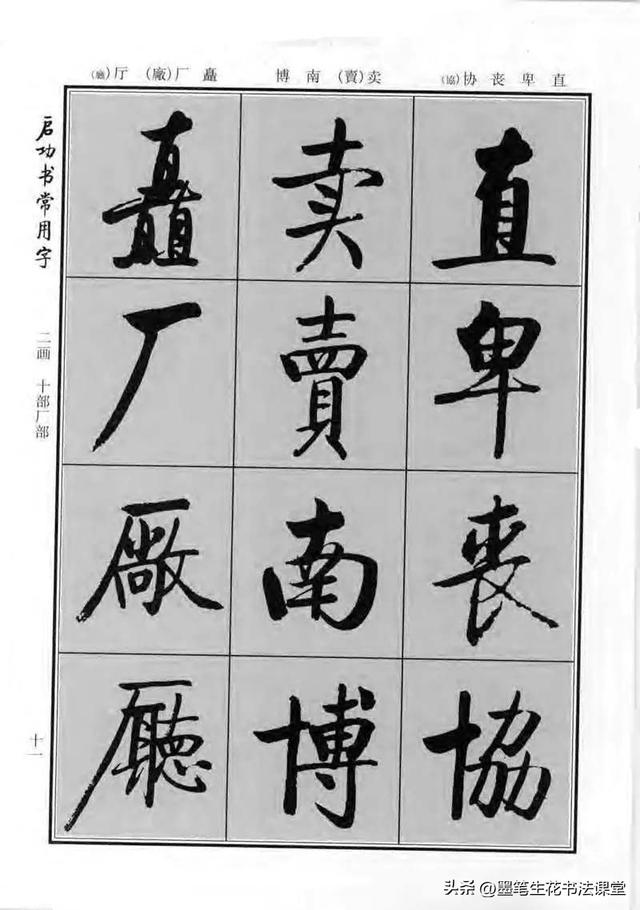 直 卑 丧 协(協)
卖(賣) 南 博
矗 厂(廠) 厅(廳)
直
卑
喪
協
卖
賣
南
博
矗
厂
廠
廳
启功书常用字
二画 十部厂部
十一
头条 @墨笔生花书法课堂